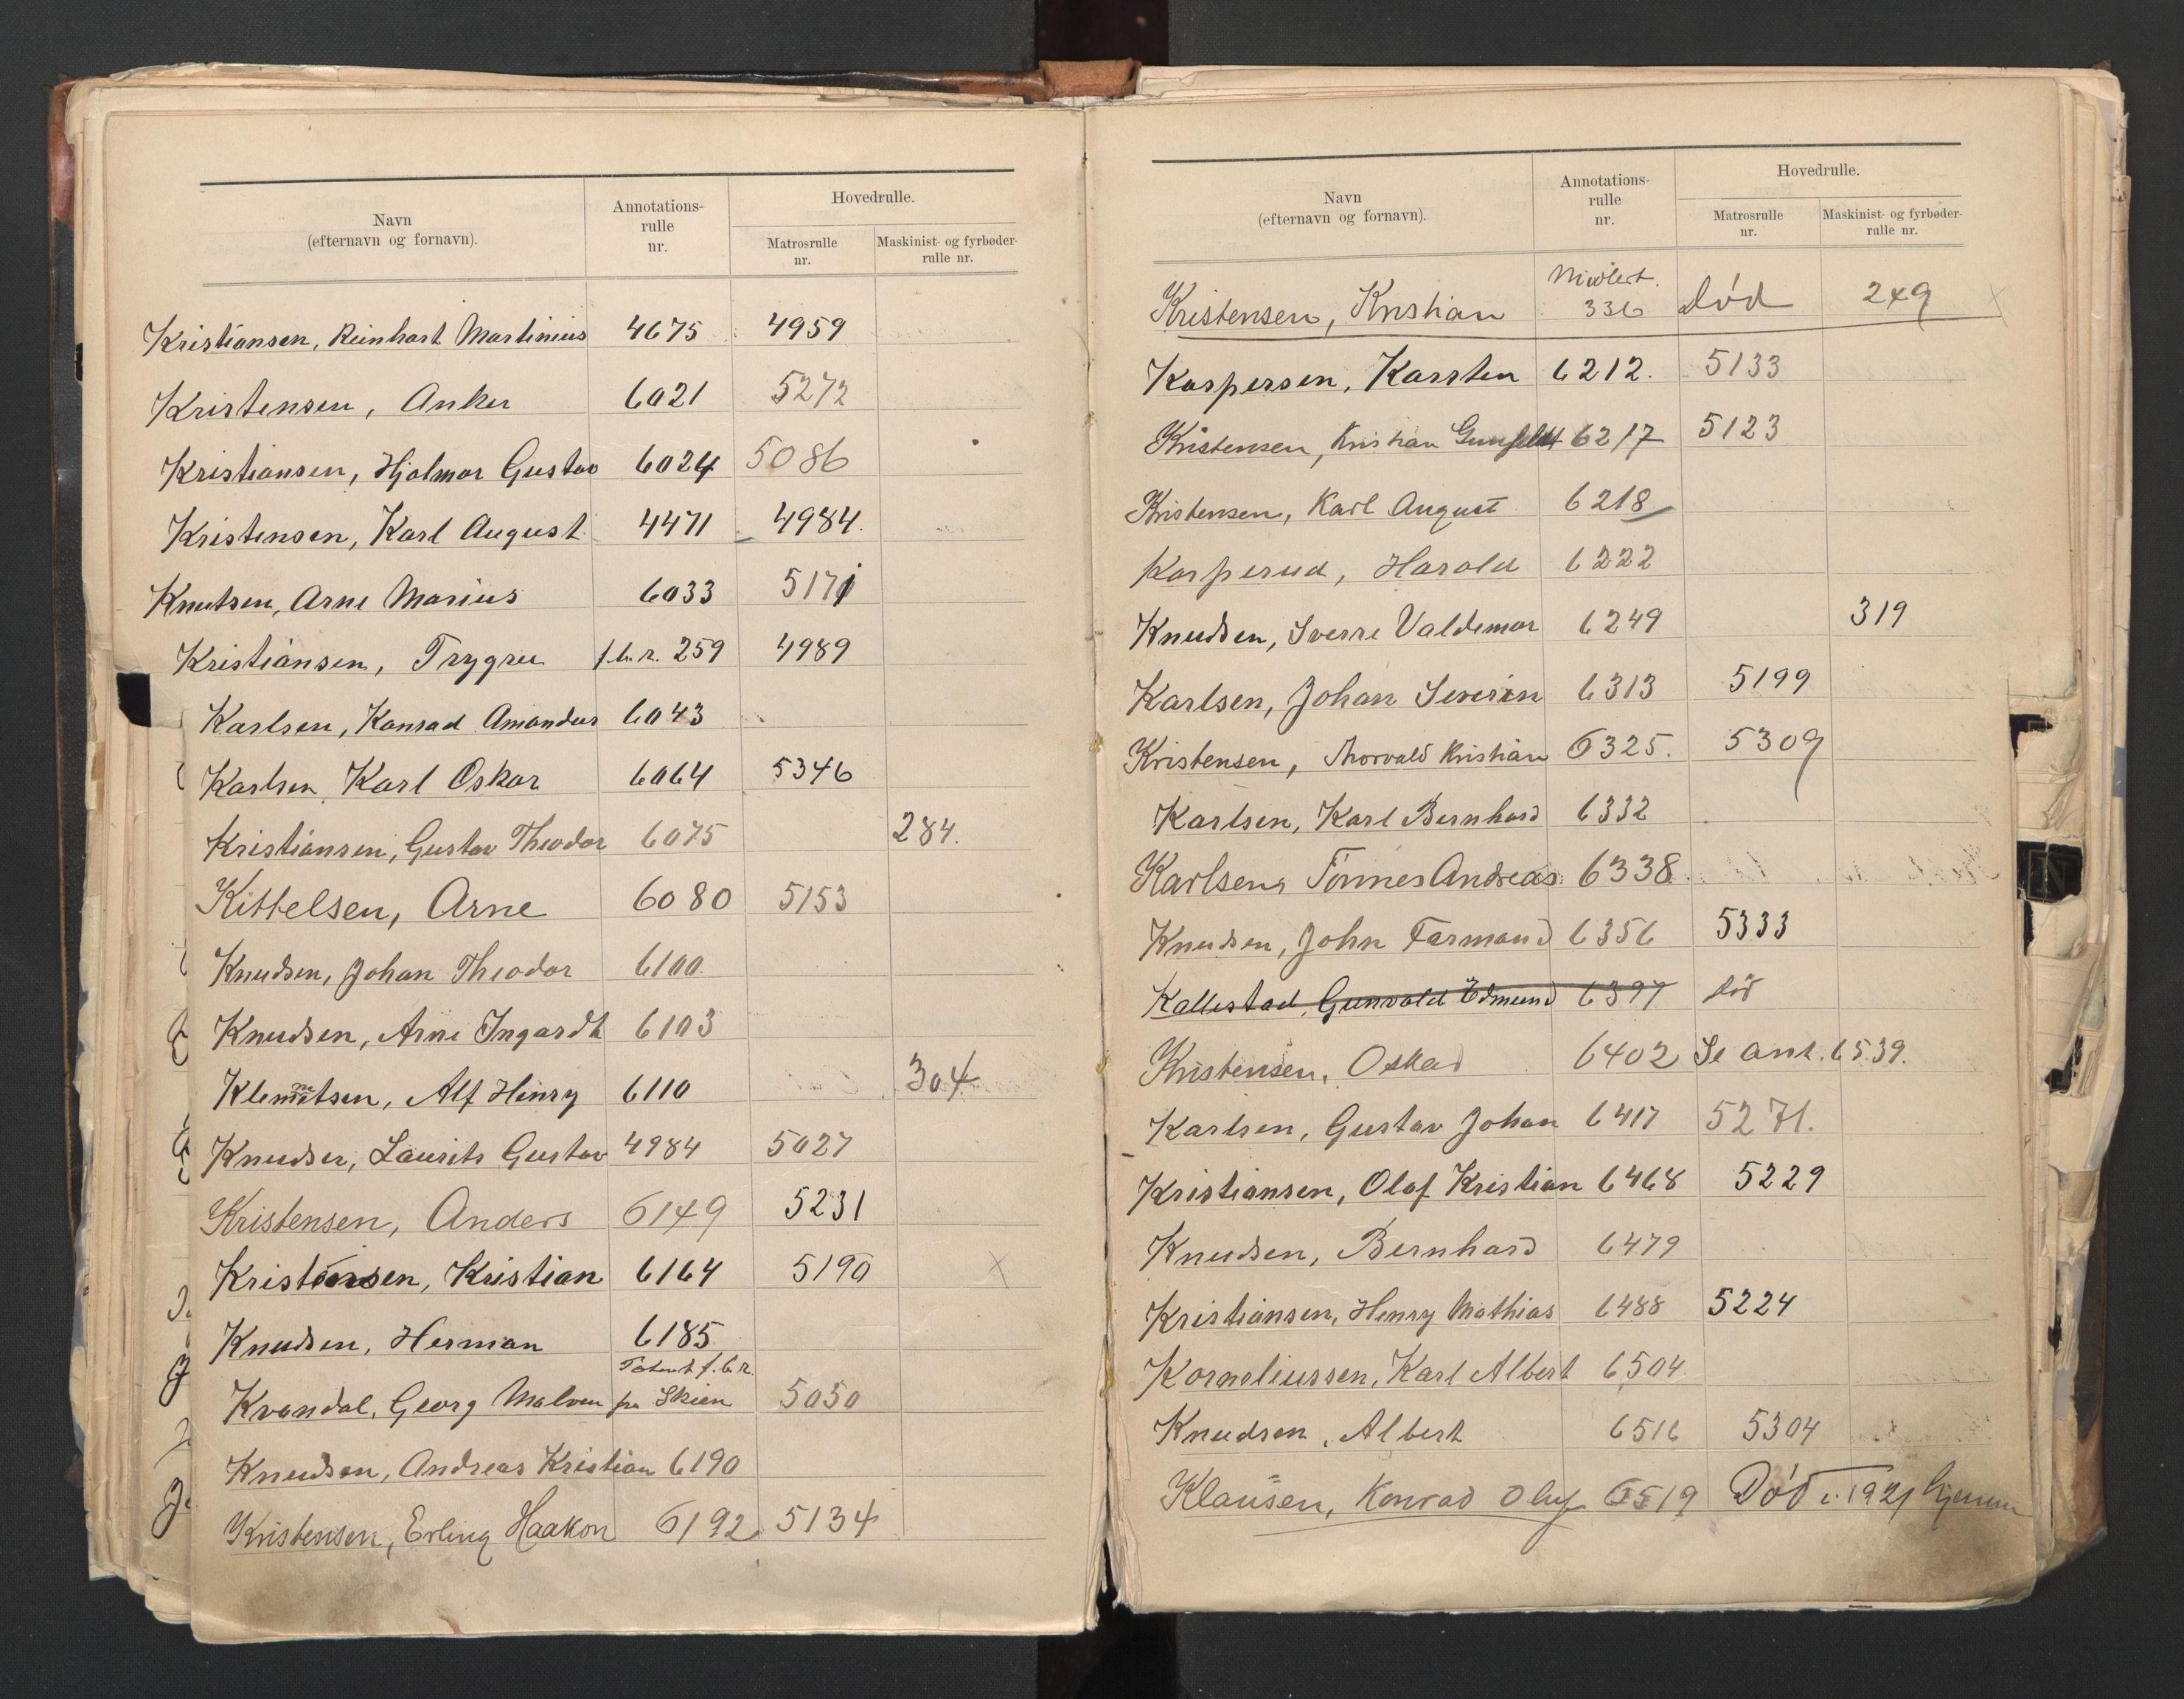 Navn
(efternavn og fornavn).
Annotations-
rulle
nr.
Hovedrulle.
Matrosrulle
nr.
Maskinist- og fyrbøder-
rulle nr.
Kristiansen, Reinhart Martinius 4675 4959
Kristensen, Anker 6021 5272
Kristiansen, Hjalmar Gustav 6024 5086
Kristensen, Karl August 4471 4984.
Knutsen, Arne Marius 6033 5171
Kristiansen, Trygve f.b.r. 259 4989
Karlsen, Konrad Amandus 6043
Karlsen, Karl Oskar 6064 5346
Kristiansen, Gustav Theodor 6075 284.
Kittelsen, Arne 6080 5153
Knudsen, Johan Theodor 6100
Knudsen, Arne Ingardt 6103
Klemetsen, Alf Henry 6110 304
Knudsen, Laurits Gustav 4984 5027
Kristensen, Anders 6149 5231
Kristensen, Kristian 6164 5190 X
Knudsen, Herman 6185
Patent f.b.r.
Kvandal, Georg Malven fra Skien 5050
Knudsen, Andreas Kristian 6190
Kristensen, Erling Haakon 6192 5134
Navn
(efternavn og fornavn).
Annotations-
rulle
nr.
Hovedrulle.
Matrosrulle
nr.
Maskinist- og fyrbøder-
rulle nr.
Kristensen, Kristian 336 Død 249 X
Kaspersen, Karsten 6212. 5133
Kristensen, Kristian 6217 5123
Kristensen, Karl August 6218
Kasperud, Harald 6222
Knudsen, Sverre Valdemar 6249 319
Karlsen, Johan Severin 6313 5199
Kristensen, Thorvald Kristian 6325. 5309
Karlsen, Karl Bernhard 6332
Karlsen, Tönnes Andreas 6338.
Knudsen, John Farmand 6356 5333
Kallestad, Gunvald Edmund 6397 død
Kristensen, Oskar 6402 Se ant. 6539.
Karlsen, Gustav Johan 6417 5271.
Kristiansen, Olaf Kristian 6468 5229
Knudsen, Bernhard 6479
Kristiansen, Henry Mathias 6488 5224
Korneliussen, Karl Albert 6504
Knudsen, Albert 6516 5304
Klausen, Konrad Oluf 6519 Død i 1921 hjemme